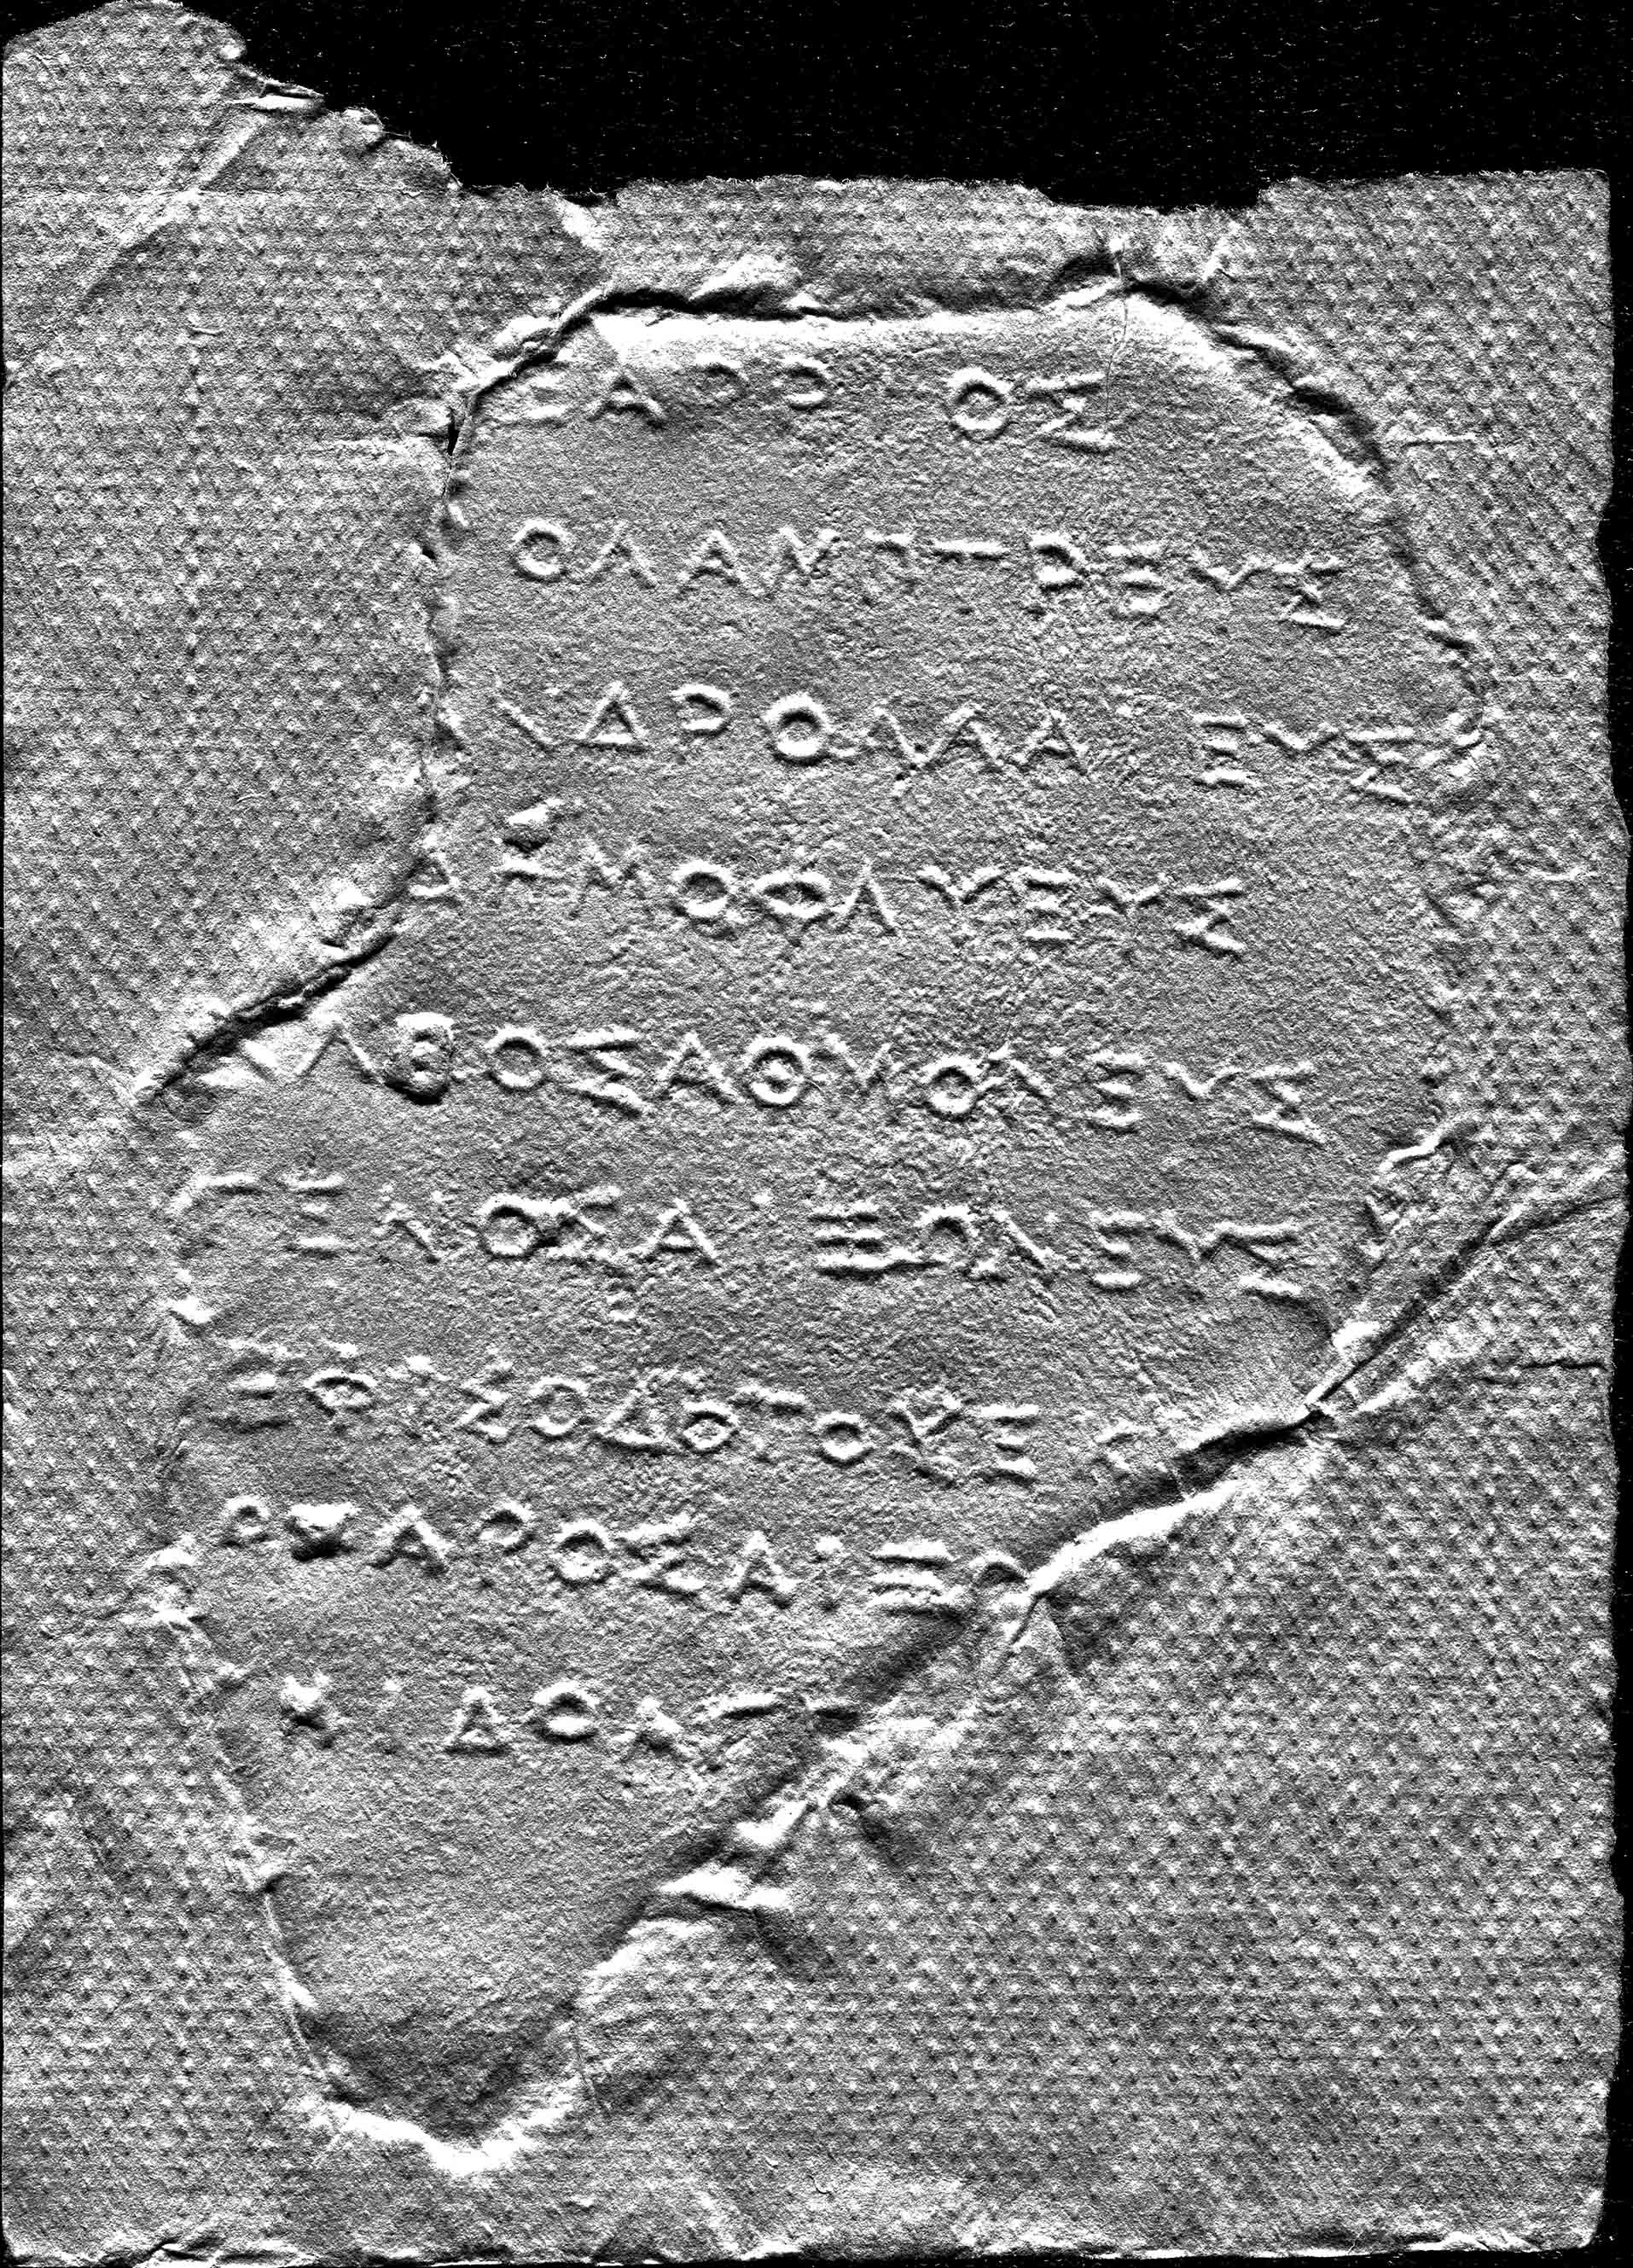 ΑΡΡ ΟΣ
ΟΛΑΜΠΤΡΕΥΣ
ΝΔΡΟΑΛΑΙΕΥΣ
ΔΗΜΟΦΛΥΕΥΣ
ΑΒΟΣΑΘΜΟΝΕΥΣ
ΓΕΝΟΣΑΙΞΩΝΕΥΣ
ΕΦΙΣΟΔΟΤΟΥΞ
ΡΧΑΡΟΣΑΙΞΩ
ΔΟΝΤ